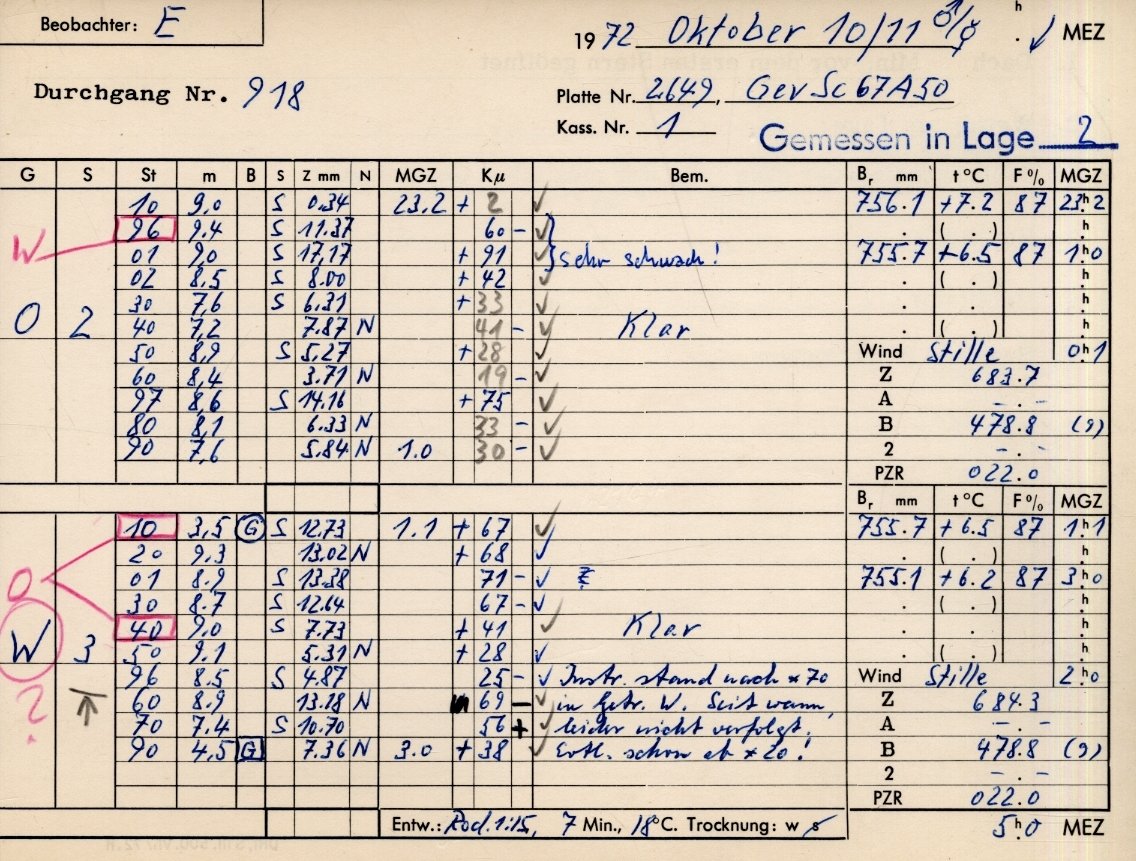 Beobachter: E
1972 Oktober 10/11 ♂/☿ h . ✓ MEZ
Durchgang Nr. 918
Platte Nr. 2649, GevSc67A50
Kass. Nr. 1
Gemessen in Lage 2
G S St m B S Z mm N MGZ Kμ Bem. Br mm t°C F% MGZ
10 9,0 S 0.34 23.2 + 2 ✓ 756.1 +7.2 87 23h2
W 96 9.4 S 11.37 60 - ✓ . ( . ) h
01 9,0 S 17,17 + 91 ✓ sehr schwach! 755.7 +6.5 87 1h0
02 8,5 S 8.00 + 42 ✓ . ( . ) h
30 7,6 S 6.31 + 33 ✓ . . h
O 2 40 7,2 7.87 N 41 - ✓ Klar . ( . ) h
50 8,9 S 5,27 + 28 ✓ Wind Stille 0h1
60 8,4 3.71 N 19 - ✓ Z 683.7
97 8,6 S 14.16 + 75 ✓ A - . -
80 8,1 6.33 N 33 - ✓ B 478.8 (9)
90 7,6 5.84 N 1.0 30 - ✓ 2 - . -
PZR 022.0
Br mm t°C F% MGZ
10 3,5 G S 12.73 1.1 + 67 ✓ 755.7 +6.5 87 1h1
20 9,3 13.02 N + 68 ✓ . ( . ) h
O 01 8.9 S 13.38 71 - ✓ 755.1 +6.2 87 3h0
30 8.7 S 12.64 67 - ✓ . ( . ) h
40 9.0 S 7.73 + 41 ✓ Klar . . h
W 3 50 9.1 5.31 N + 28 ✓ . ( . ) h
96 8.5 S 4.87 25 - ✓ Instr. stand nach * 70 Wind Stille 2h0
? 60 8.9 13.18 N 69 - ✓ in Getr. W. Seit wann, Z 684.3
70 7.4 S 10.70 56 + ✓ leider nicht verfolgt. A - . -
90 4,5 G 7.36 N 3.0 + 38 ✓ Evtl. schon ab * 20! B 478.8 (9)
2 - . -
PZR 022.0
Entw.: Rod. 1:15, 7 Min., 18°C. Trocknung: w s 5h0 MEZ